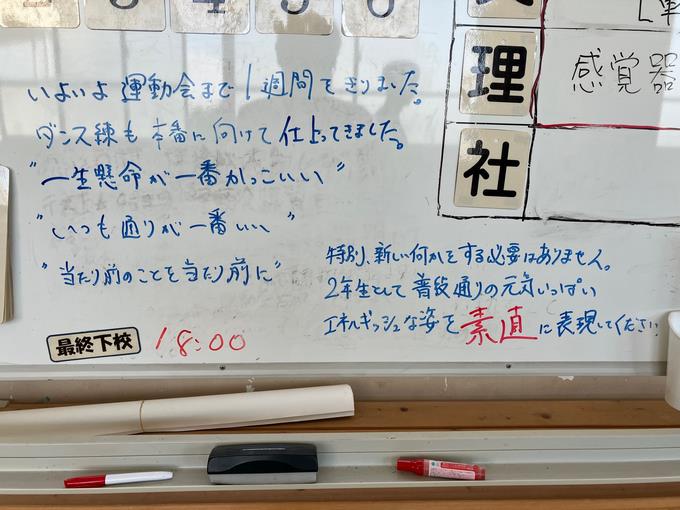 3 4 5 6
理
感覚器
社
いよいよ運動会まで1週間をきりました。
ダンス練も本番に向けて仕上ってきました。
"一生懸命が一番かっこいい"
"いつも通りが一番いい"
"当たり前のことを当たり前に"
特別、新しい何かをする必要はありません。
2年生として普段通りの元気いっぱい
エネルギッシュな姿を素直に表現してください。
最終下校 18:00